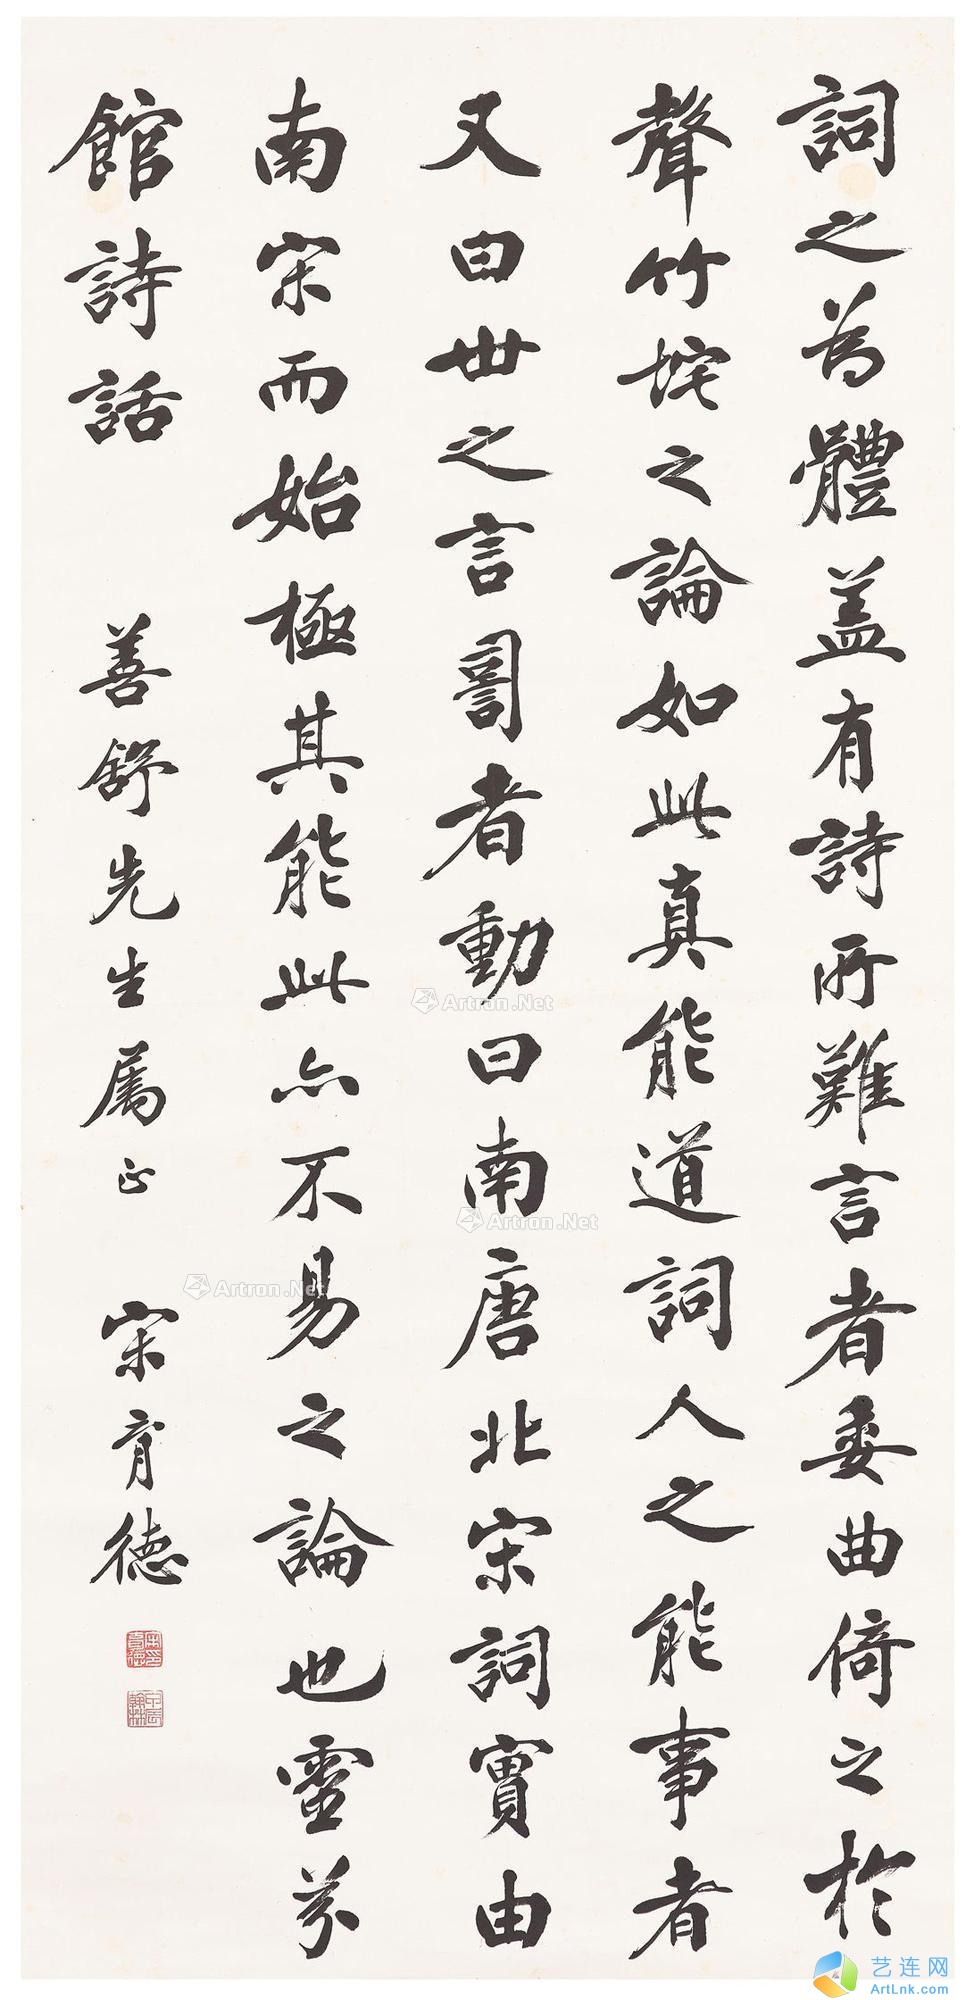 詞之為體盖有詩所難言者委曲倚之於
聲竹垞之論如此真能道詞人之能事者
又曰世之言詞者動曰南唐北宋詞實由
南宋而始極其能此亦不易之論也靈芬
館詩話
善舒先生属正
宋育德
Artron.Net
Artron.Net
Artron.Net
艺连网
ArtLnk.com